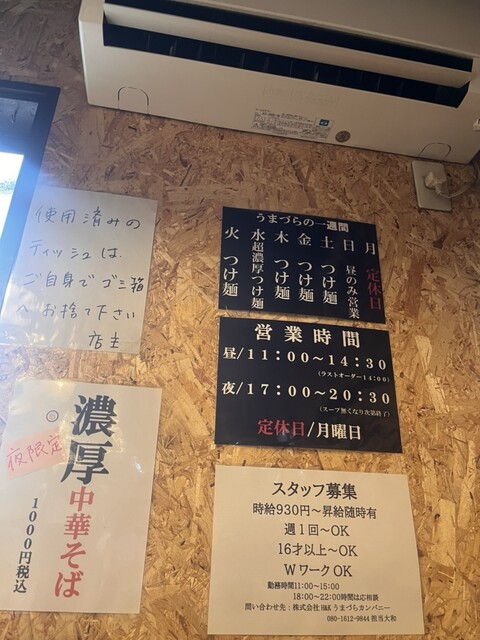 使用済みの
ティッシュは、
ご自身でゴミ箱
へお捨て下さい
店主
うまづらの一週間
火 つけ麺
水 超濃厚つけ麺
木 つけ麺
金 つけ麺
土 つけ麺
日 昼のみ営業
月 定休日
営業時間
昼/11:00〜14:30
(ラストオーダー14:00)
夜/17:00〜20:30
(スープ無くなり次第終了)
定休日/月曜日
濃厚中華そば
夜限定
1000円税込
スタッフ募集
時給930円〜昇給随時有
週1回〜OK
16才以上〜OK
WワークOK
勤務時間11:00〜15:00
18:00〜22:00時間は応相談
問い合わせ先:株式会社H&Kうまづらカンパニー
080-1612-9844 担当大和